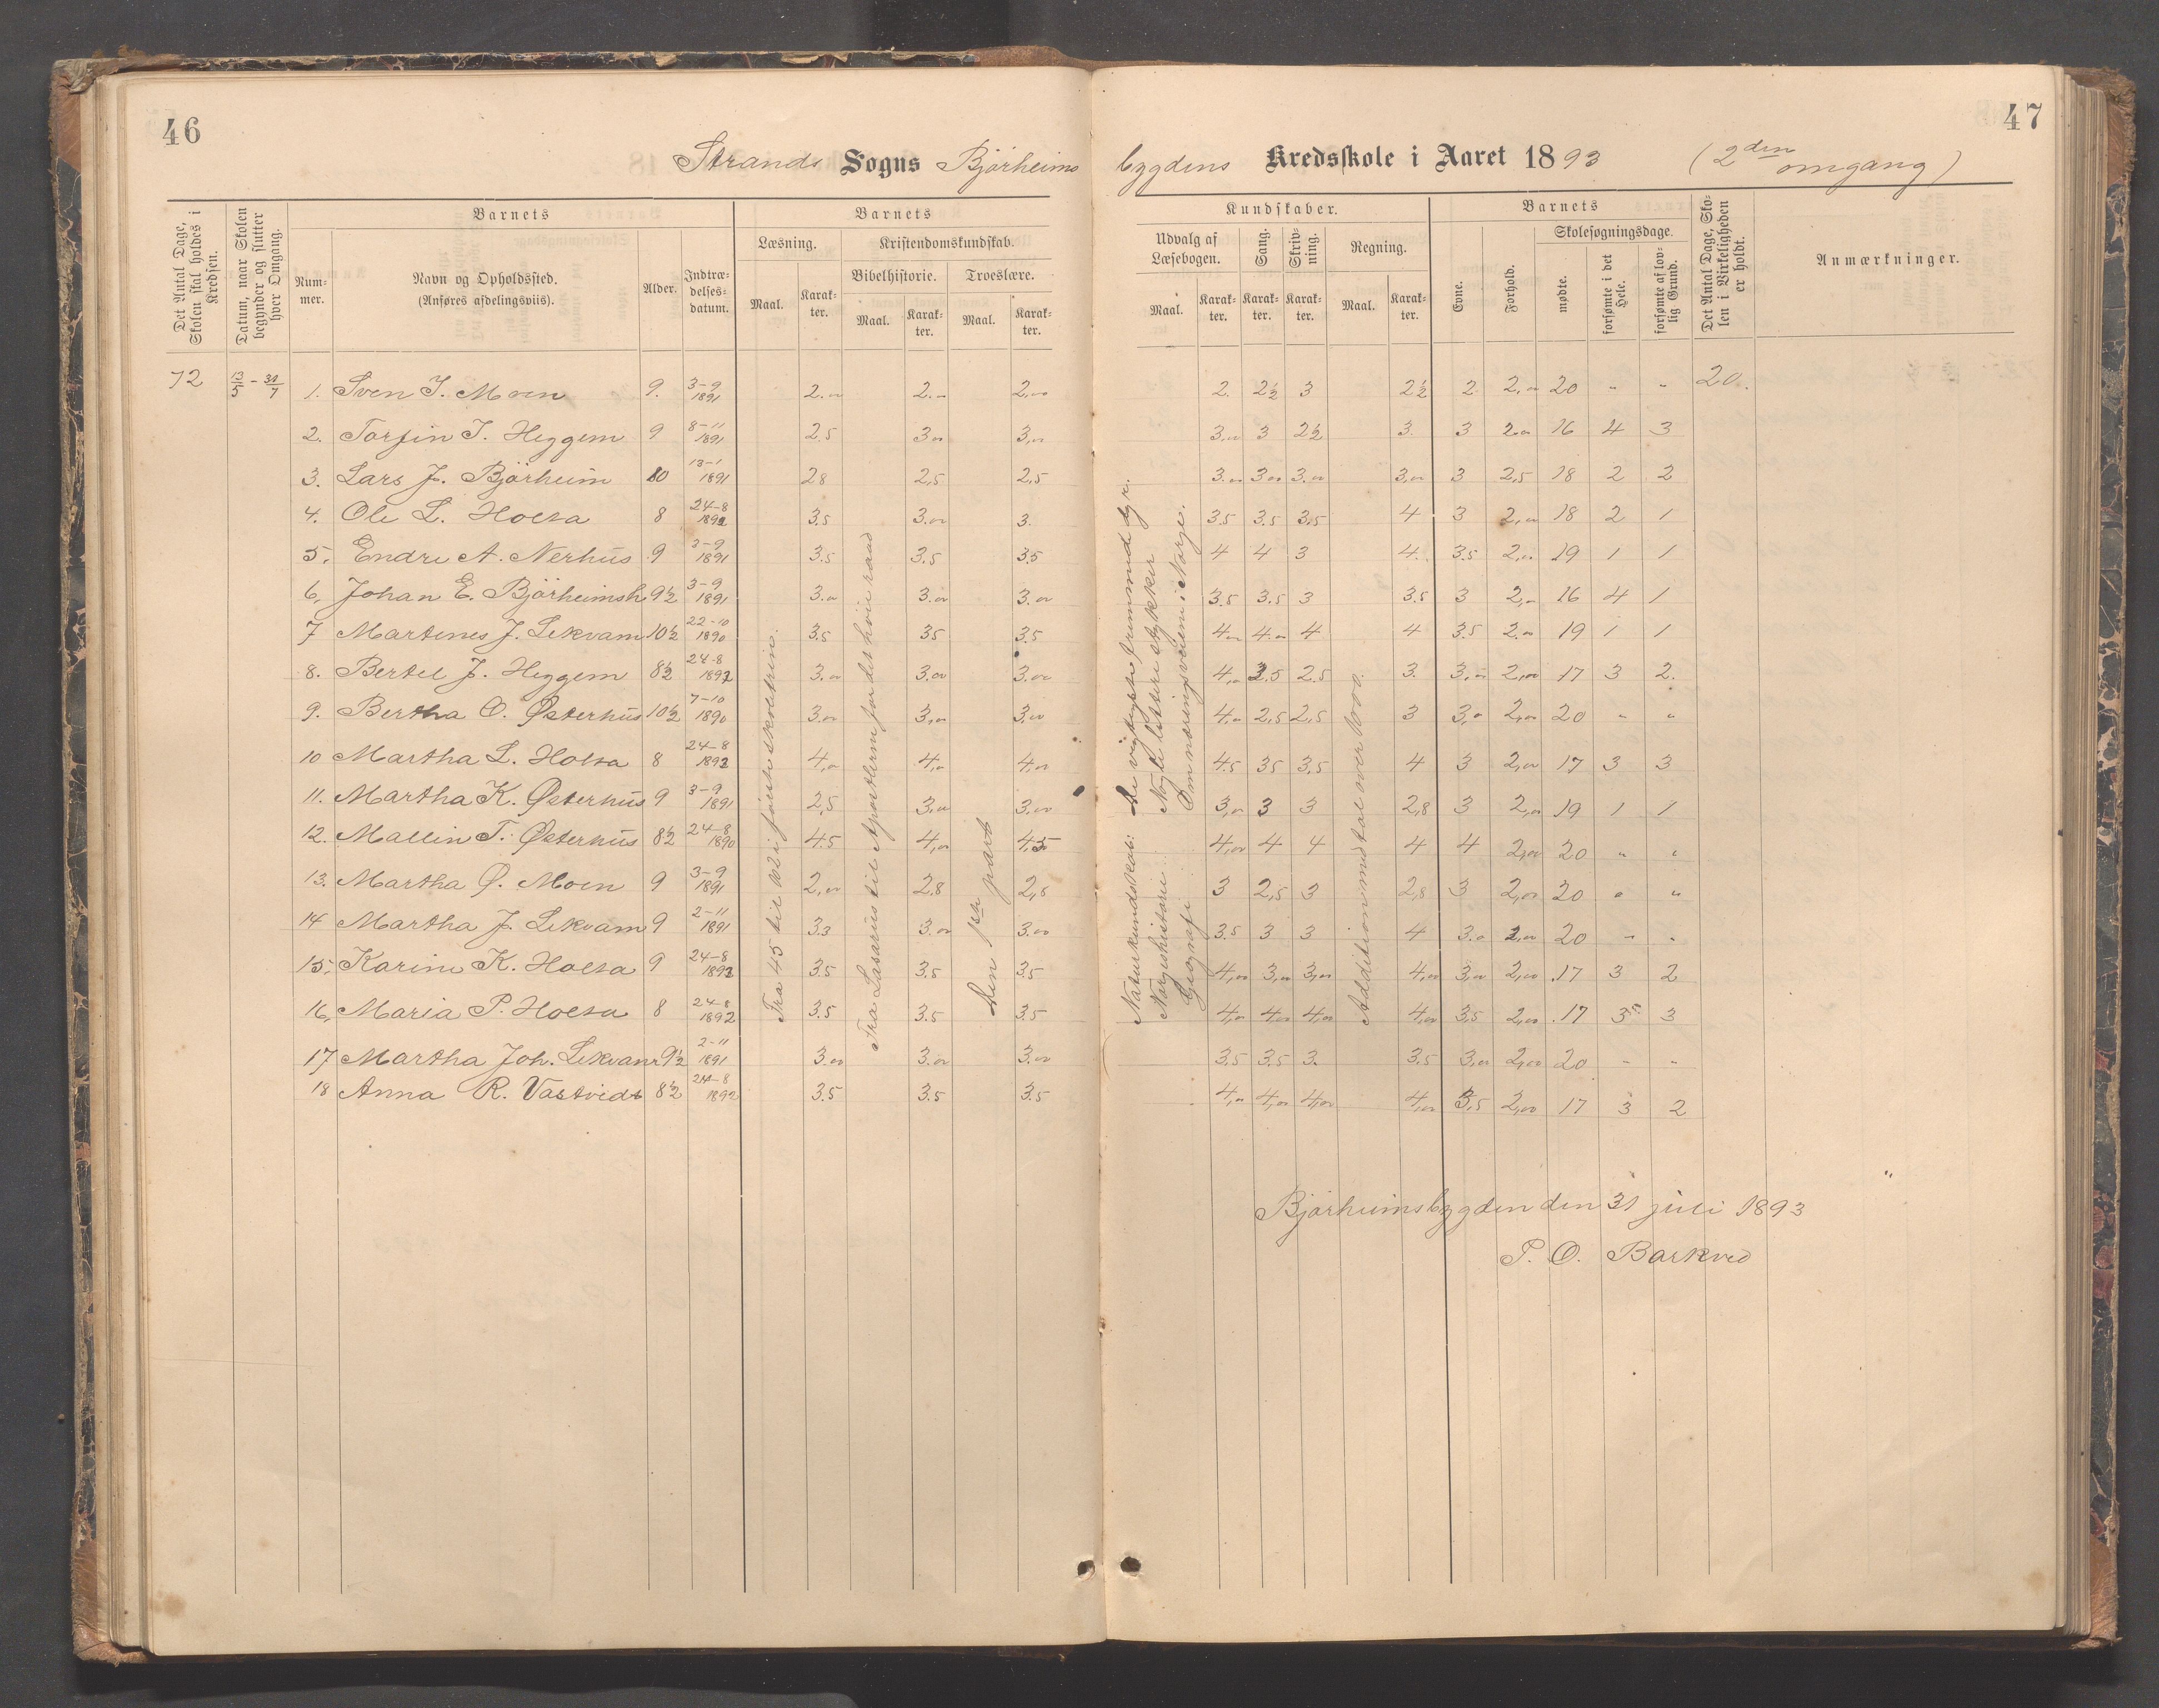 46
47
Strands Sogns Bjørheims bygdens Kredsskole i Aaret 1893 (2den omgang)
Det Antal Dage, Skolen skal holdes i Kredsen.
Datum, naar Skolen begynder og slutter hver Omgang.
Barnets
Nummer.
Navn og Opholdssted.
(Anføres afdelingsviis).
Alder.
Indtrædelsesdatum.
Barnets
Læsning.
Maal.
Karakter.
Kristendomskundskab.
Bibelhistorie.
Maal.
Karakter.
Troeslære.
Maal.
Karakter.
Kundskaber.
Udvalg af Læsebogen.
Maal.
Karakter.
Sang.
Karakter.
Skrivning.
Karakter.
Regning.
Maal.
Karakter.
Barnets
Evne.
Forhold.
Skolesøgningsdage.
mødte.
forsømte i det Hele.
forsømte af lovlig Grund.
Det Antal Dage, Skolen i Virkeligheden er holdt.
Anmærkninger.
72 13/5 - 31/7 1. Sven T. Moen 9. 3-9 1891 2.00 2.00 2,00 2. 2½ 3 2½ 2 2,00 20 " " 20.
2. Torfin T. Heggem 9 8-11 1891 2.5 3.00 3,00 3.00 3 2½ 3. 3 2.00 16 4 3
3. Lars J. Bjørheim 10 13-1 1891 2.8 2,5 2,5 3.00 3.00 3.00 3,00 3 2,5 18 2 2
4. Ole L. Holta 8 24-8 1892 3.5 3.00 3. 3.5 3.5 3.5 4 3 2,00 18 2 1
5. Endre A. Nerhus 9 3-9 1891 3.5 3.5 3.5 4 4 3 4. 3.5 2,00 19 1 1
6. Johan E. Bjørheimsh 9½ 3-9 1891 3.00 3.00 3.00 3.5 3.5 3 3.5 3 2,00 16 4 1
7 Martenes J. Lekvam 10½ 22-10 1890 3.5 3.5 3.5 4.00 4.00 4 4 3.5 2.00 19 1 1
8. Bertel J. Heggem 8½ 24-8 1892 3.00 3.00 3.00 4,00 2.5 2.5 3. 3.00 2,00 17 3 2.
9. Bertha O. Østerhus 10½ 7-10 1890 3.00 3,00 3,00 4,00 2,5 2,5 3 3,0 2,00 20 " "
10 Martha L. Holta 8 24-8 1892 4,00 4,00 4,00 4.5 3.5 3,5 4 3 2,00 17 3 3
11. Martha K. Østerhus 9 3-9 1891 2,5 3,00 3,00 3,00 3 3 2,8 3 2,00 19 1 1
12. Mallin T. Østerhus 8½ 24-8 1890 4.5 4,00 4,5 4,00 4 4 4 4 2,00 20 " "
13. Martha Ø. Moen 9 3-9 1891 2,00 2,8 2,8 3 2,5 3 2,8 3 2,00 20 " "
14 Martha J. Lekvam 9 2-11 1891 3.3 3.00 3.00 3.5 3 3 4 3.0 2,00 20 " "
15. Karine K. Holta 9 24-8 1892 3.5 3.5 3.5 4,00 3,00 3,00 4,00 3,00 2,00 17 3 2
16, Maria P. Holta 8 24-8 1892 3.5 3.5 3.5 4,00 4,00 4,00 4,00 3,5 2,00 17 3 3
17 Martha Joh. Lekvam 9½ 2-11 1891 3.00 3.00 3.00 3.5 3.5 3. 3.5 3,00 2,00 20 " "
18 Anna R. Vastvedt 8½ 24-8 1892 3.5 3.5 3.5 4,00 4,00 4,00 4,00 3,5 2,00 17 3 2
Fra 45 til 62 i første skoletrin.
Fra Lasarus til Apostlerne for det høie raad
Den 1ste part
Naturkundskab: De vigtigste fremmed dyr.
Norgeshistorie Nogle lettere stykker
Geografi Om næringsveiene i Norge.
Addition med tal over 1000.
Bjørheimsbygden den 31 juli 1893
P. O. Barkved